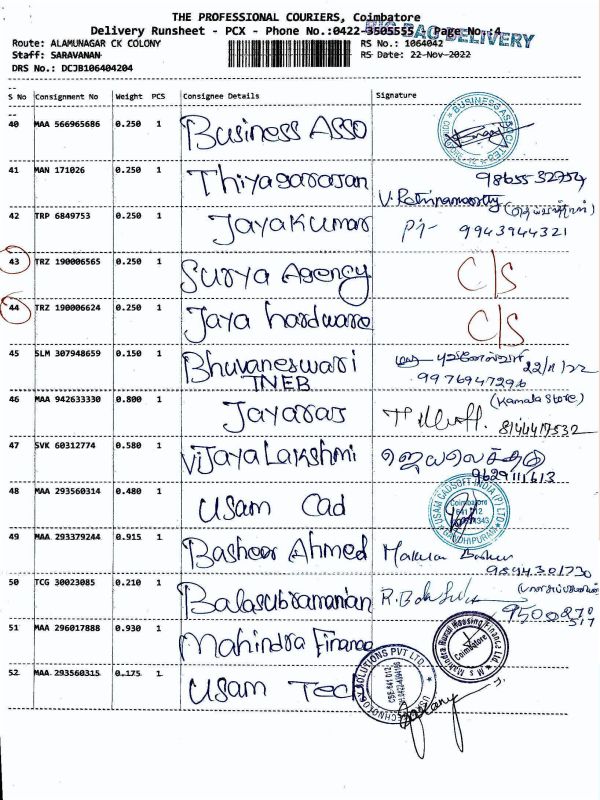 THE PROFESSIONAL COURIERS, Coimbatore
Delivery Runsheet - PCX - Phone No.:0422-3505555 Page No.:4
BIG BAG DELIVERY
Route: ALAMUNAGAR CK COLONY RS No.: 1064042
Staff: SARAVANAN RS Date: 22-Nov-2022
DRS No.: DCJB106404204
S No Consignment No Weight PCS Consignee Details Signature
40 MAA 566965686 0.250 1 Business Asso
BUSINESS ASSOCIATES
41 MAN 171026 0.250 1 Thiyagarajan 9865532754
V. Rathinamoorthy
42 TRP 6849753 0.250 1 Jayakumar 9943944321
43 TRZ 190006565 0.250 1 Surya Agency C/S
44 TRZ 190006624 0.250 1 Jaya hardware C/S
45 SLM 307948659 0.150 1 Bhuvaneswari 22/11/22
TNEB 9976947296
46 MAA 942633330 0.800 1 Jayaraj (Kamala Store)
8144417532
47 SVK 60312774 0.580 1 VijayaLakshmi
9629111613
48 MAA 293560314 0.480 1 Usam Cad
USAM CADSOFT INDIA (P) LTD
Coimbatore
641 012
GANDHIPURAM
49 MAA 293379244 0.915 1 Basheer Ahmed
9894301730
50 TCG 30023085 0.210 1 Balasubramanian
51 MAA 296017888 0.930 1 Mahindra Finance
M/s Mahindra Rural Housing Finance Ltd.
Coimbatore
52 MAA 293560315 0.175 1 Usam Tech
USAM TECHNOLOGY SOLUTIONS PVT LTD.
CBE-641 012